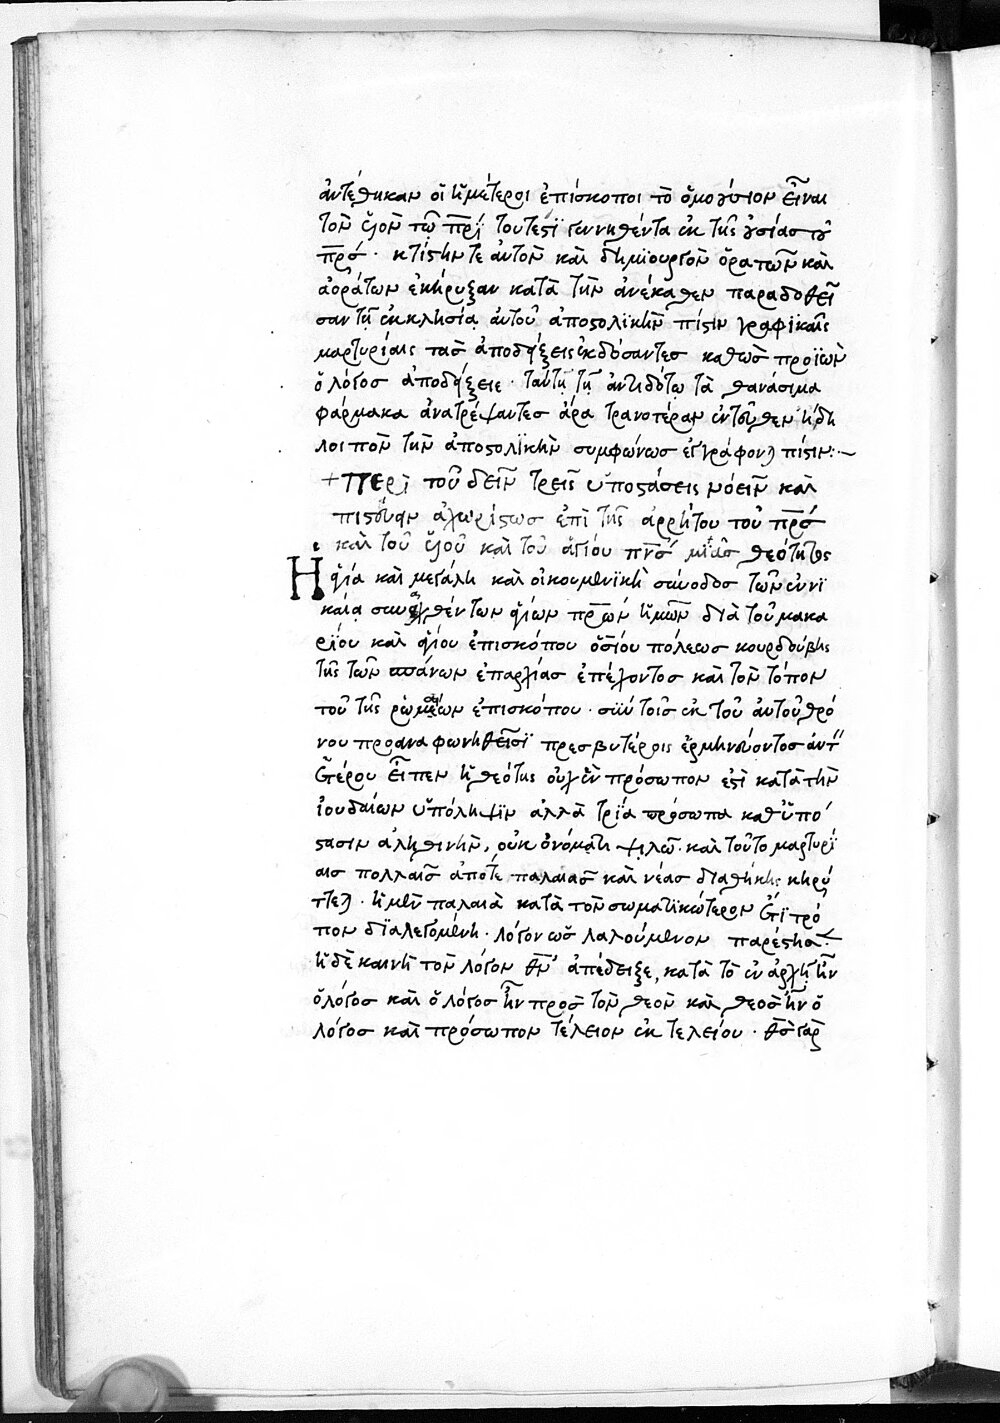 ἀντέθηκαν οἱ ἡμέτεροι ἐπίσκοποι τὸ ὁμοούσιον εἶναι
τὸν υἱὸν τῷ πρϊ τουτέστι γεννηθέντα ἐκ τῆς οὐσίας τοῦ
πρσ· κτίστην τε αὐτὸν καὶ δημϊουργὸν ὁρατῶν καὶ
ἀοράτων ἐκήρυξαν κατὰ τὴν ἀνέκαθεν παραδοθεῖ
σαν τῇ ἐκκλησίᾳ αὐτοῦ ἀποστολϊκὴν πίστιν γραφϊκαῖς
μαρτυρίαις τὰς ἀποδείξεις ἐκδόσαντες καθὼς προϊὼν
ὁ λόγος ἀποδείξειε· ταύτῃ τῇ ἀντιδότῳ τὰ θανάσιμα
φάρμακα ἀνατρέψαντες ἄρα τρανοτέραν ἐντεῦθεν ἤδη
λοιπὸν τὴν ἀποστολϊκὴν συμφώνως ἐγράφον πίστιν:~
+ Περὶ τοῦ δεῖν τρεῖς ὑποστάσεις νοεῖν καὶ
πιστεύειν ἀχωρίστως ἐπὶ τῆς ἀρρήτου τοῦ πρσ
καὶ τοῦ υἱοῦ καὶ τοῦ ἁγίου πνσ μιᾶς θεότητος
Ἡ ἁγία καὶ μεγάλη καὶ οἰκουμενϊκὴ σύνοδος τῶν ἐν νϊ
καίᾳ συναχθέντων ἁγίων πρων ἡμῶν διὰ τοῦ μακα
ρίου καὶ ἁγίου ἐπισκόπου ὁσίου πόλεως κουρδούβης
τῆς τῶν σπάνων ἐπαρχίας ἐπέχοντος καὶ τὸν τόπον
τοῦ τῆς ῥωμαίων ἐπισκόπου· σὺν τοῖς ἐκ τοῦ αὐτοῦ θρό
νου προαναφωνηθεῖσϊ πρεσβυτέροις ἑρμηνεύοντος αὐτ
ἑτέρου εἶπεν ἡ θεότης οὐχ ἓν πρόσωπον ἐστὶ κατὰ τὴν
ἰουδαίων ὑπόληψϊν ἀλλὰ τρία πρόσωπα καθ' ὑπό
στασιν ἀληθινὴν, οὐκ ὀνόματι ψιλῷ· καὶ τοῦτο μαρτυρί
αις πολλαῖς ἀπότε παλαιᾶς καὶ νέας διαθήκης κηρύ
ττει· ἡ μὲν παλαιὰ κατὰ τὸν σωματϊκώτερον ἔτϊ τρό
πον δϊαλεγομένη· λόγον ὡς λαλούμενον παρέστησε.
ἡ δὲ καινὴ τὸν λόγον θν ἀπέδειξε, κατὰ τὸ ἐν ἀρχῇ ἦν
ὁ λόγος καὶ ὁ λόγος ἦν πρὸς τὸν θεὸν καὶ θεὸς ἦν ὁ
λόγος καὶ πρόσωπον τέλειον ἐκ τελείου· θς γὰρ